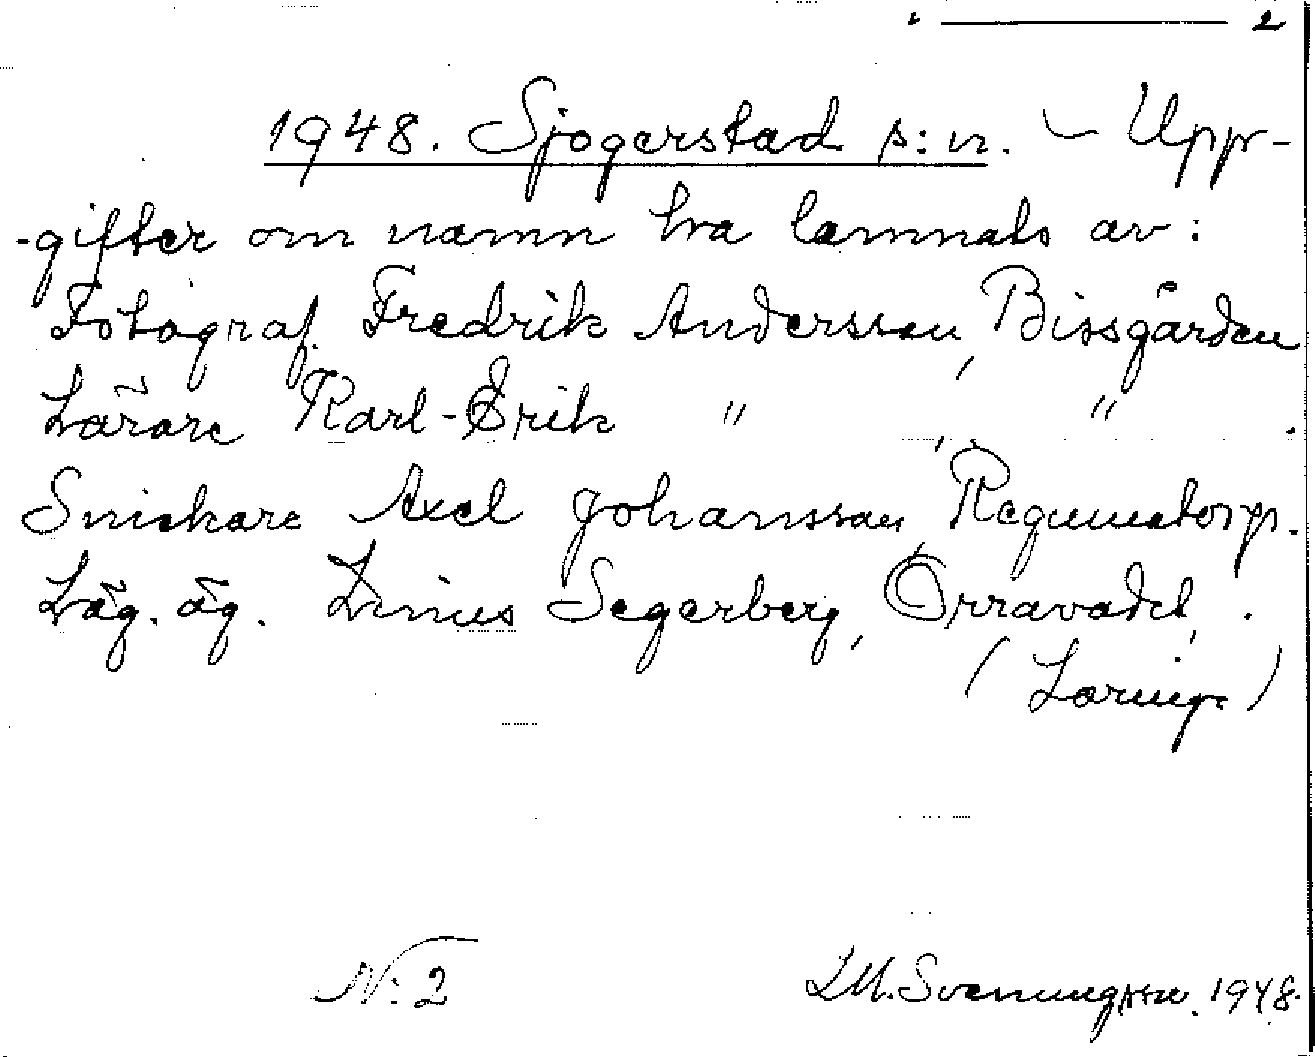 2
1948. Sjogerstad s:n. - Upp-
-gifter om namn ha lämnats av:
Fotograf. Fredrik Andersson, Bissgården
Lärare Karl-Erik " , " .
Snickare Axel Johansson, Regumatorp.
Läg. äg. Linus Segerberg, Orravadet, .
( Laring )
N: 2
LM. Svenungsson. 1948.